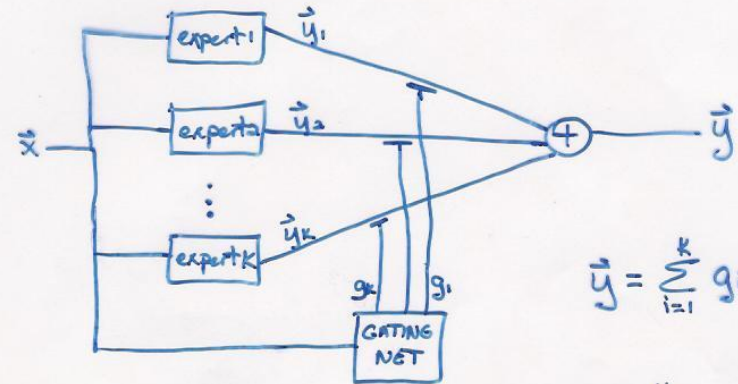 expert1
y⃗1
expert2
y⃗2
x⃗
+
y⃗
⋮
expertK
y⃗K
gK
g1
GATING
NET
y⃗ = K∑i=1 g